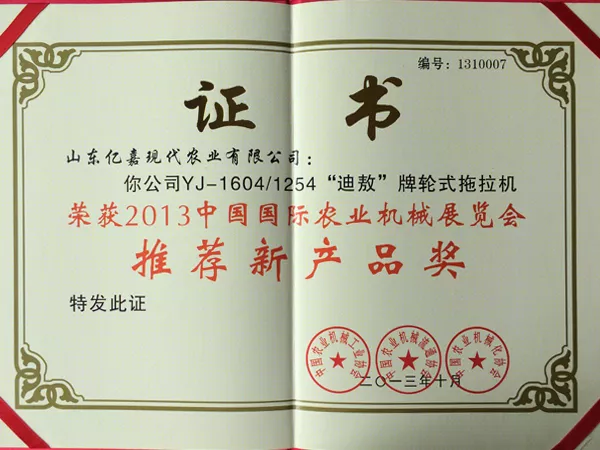 编号：1310007
证书
山东亿嘉现代农业有限公司：
你公司YJ-1604/1254“迪敖”牌轮式拖拉机
荣获2013中国国际农业机械展览会
推荐新产品奖
特发此证
中国农业机械工业协会
中国农业机械流通协会
中国农业机械化协会
二〇一三年十月